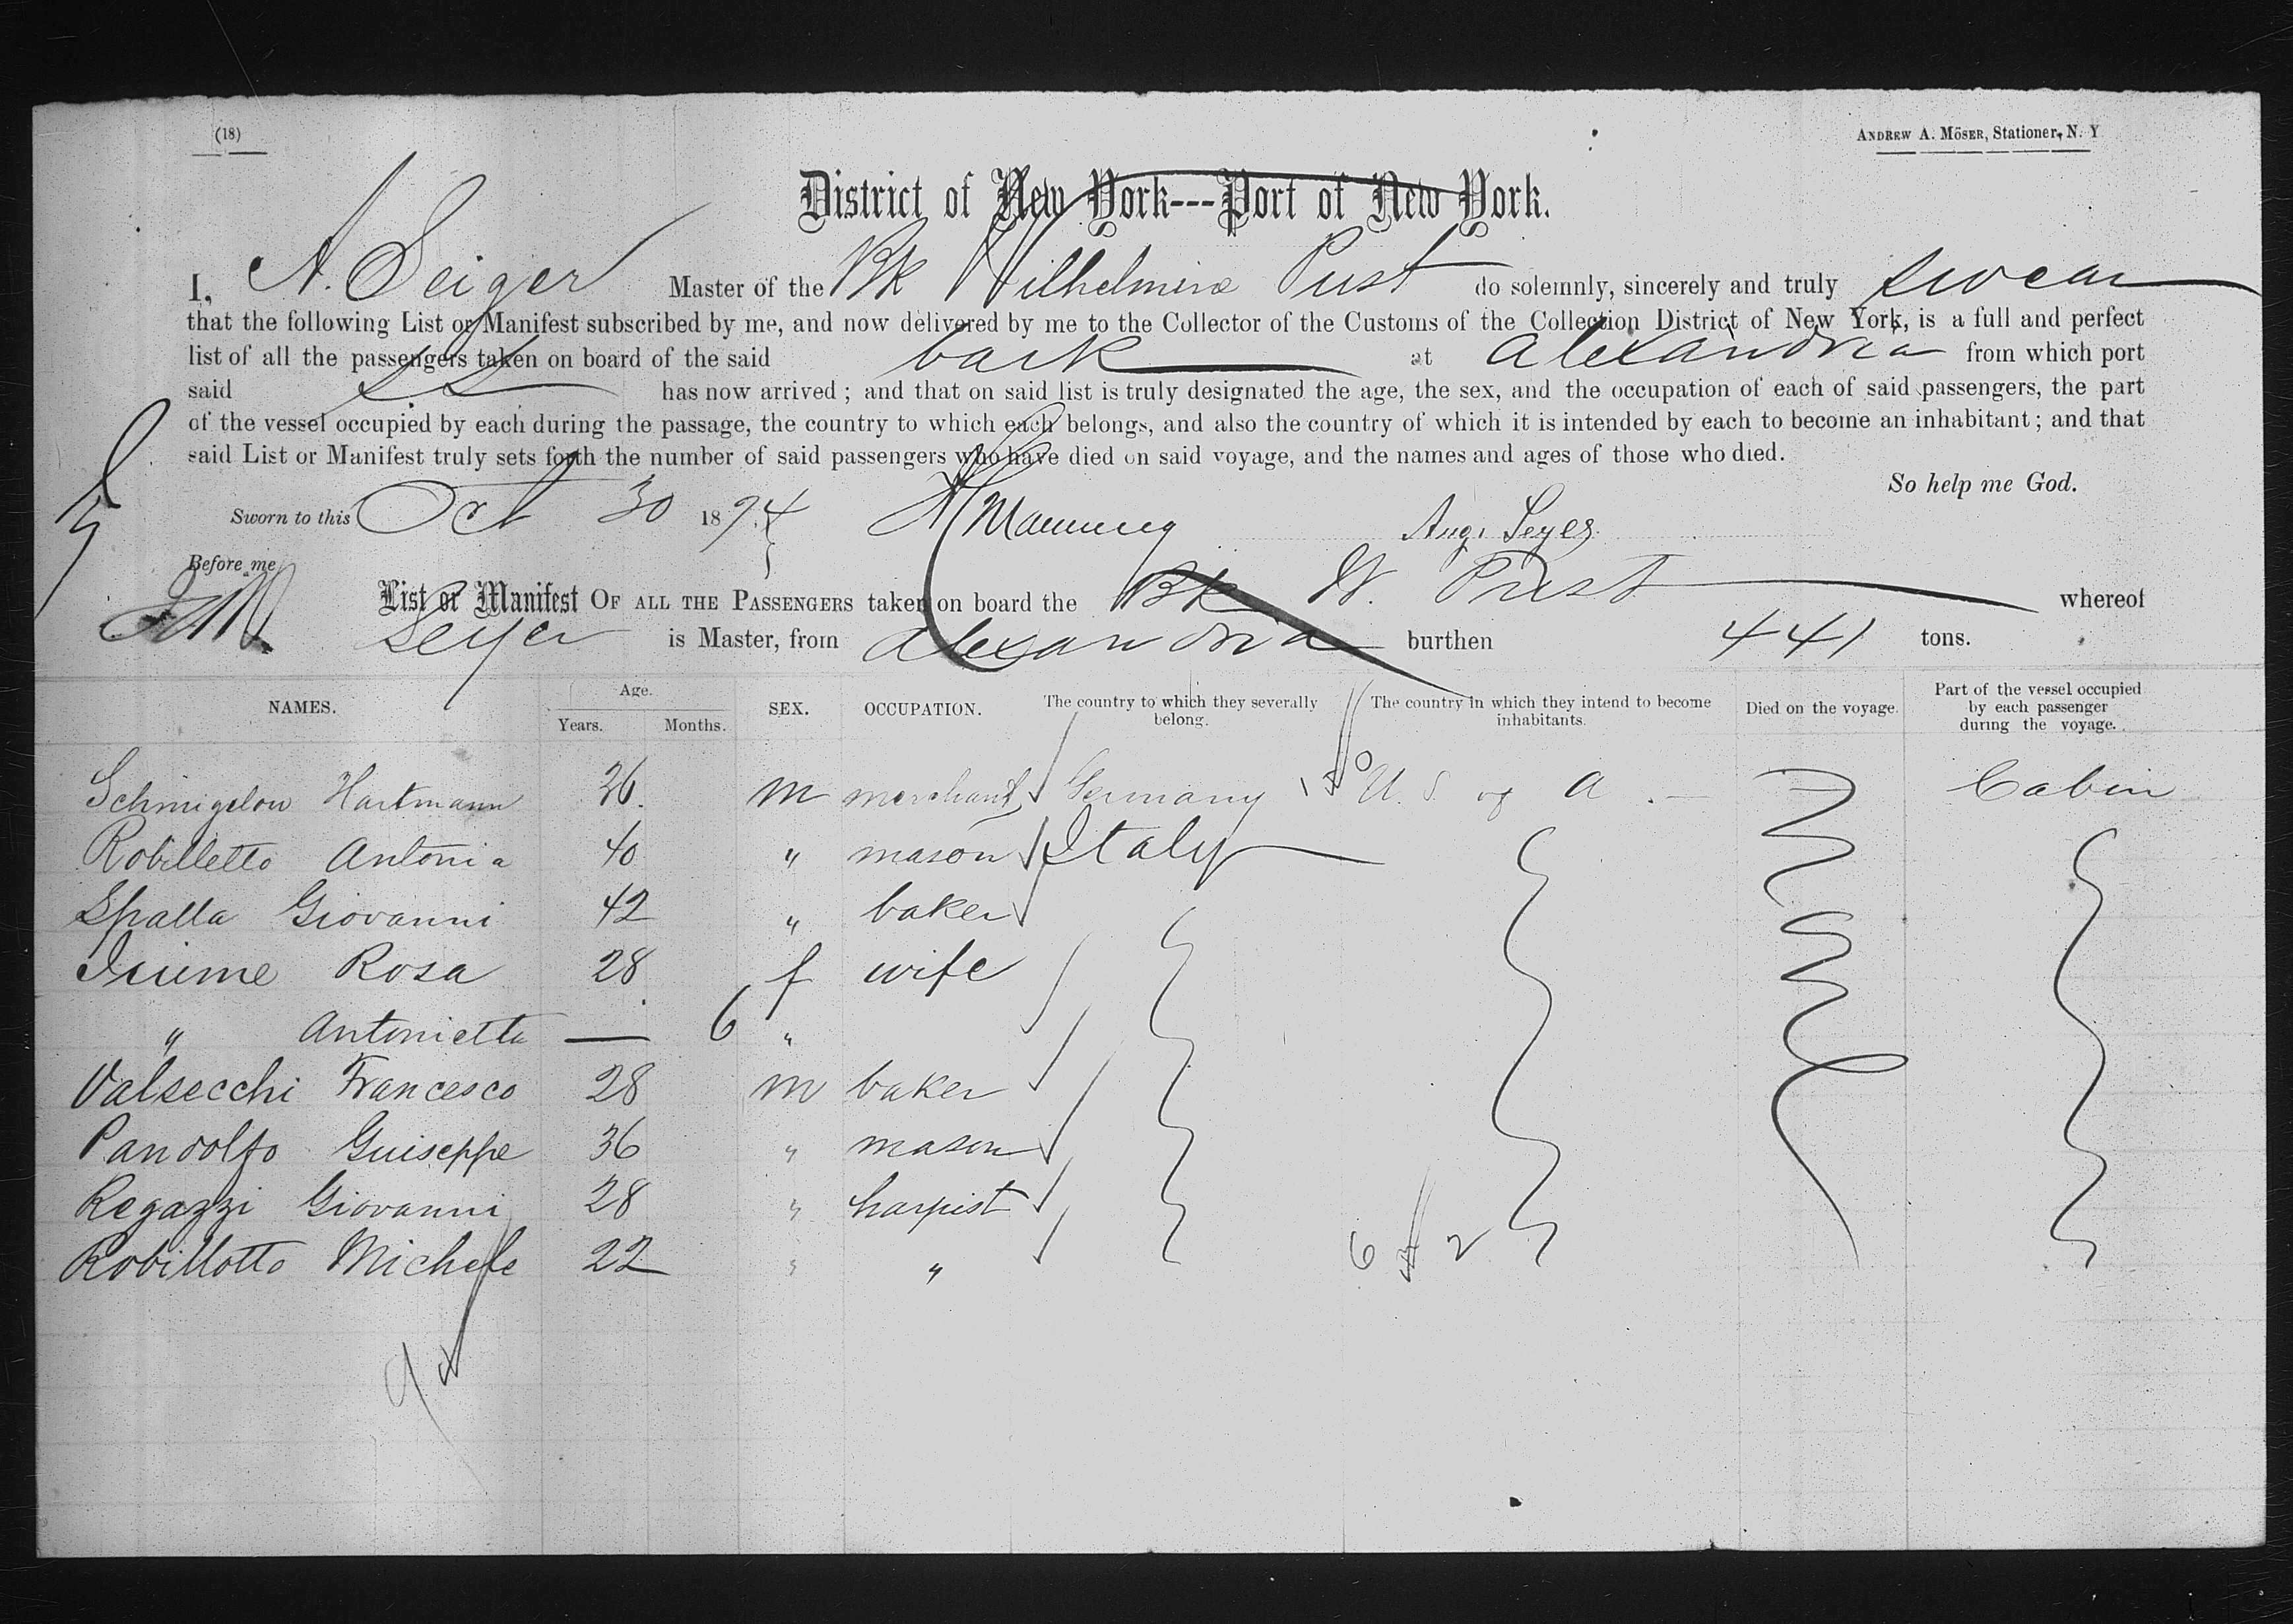 (18)
ANDREW A. MÖSER, Stationer, N. Y
District of New York---Port of New York.
I, A. Seiger Master of the Bk Wilhelmine Pust do solemnly, sincerely and truly swear
that the following List or Manifest subscribed by me, and now delivered by me to the Collector of the Customs of the Collection District of New York, is a full and perfect
list of all the passengers taken on board of the said bark at Alexandria from which port
said has now arrived; and that on said list is truly designated the age, the sex, and the occupation of each of said passengers, the part
of the vessel occupied by each during the passage, the country to which each belongs, and also the country of which it is intended by each to become an inhabitant; and that
said List or Manifest truly sets forth the number of said passengers who have died on said voyage, and the names and ages of those who died.
So help me God.
Sworn to this Oct 30 1874 Manning Aug. Seyer
Before me
List or Manifest OF ALL THE PASSENGERS taken on board the Bk W. Pust whereof
Seyer is Master, from Alexandria burthen 441 tons.
NAMES. Age. Years. Months. SEX. OCCUPATION. The country to which they severally belong. The country in which they intend to become inhabitants. Died on the voyage. Part of the vessel occupied by each passenger during the voyage.
Schmigelow Hartmann 26. m merchant Germany U. S. of A. Cabin
Robilletto Antonia 40 " mason Italy
Spalla Giovanni 42 " baker
Rosa 28 f wife
" Antonietta — 6 "
Valsecchi Francesco 28 m baker
Pandolfo Guiseppe 36 " mason
Regazzi Giovanni 28 " harpist
Robillotto Michele 22 " "
6 2
9